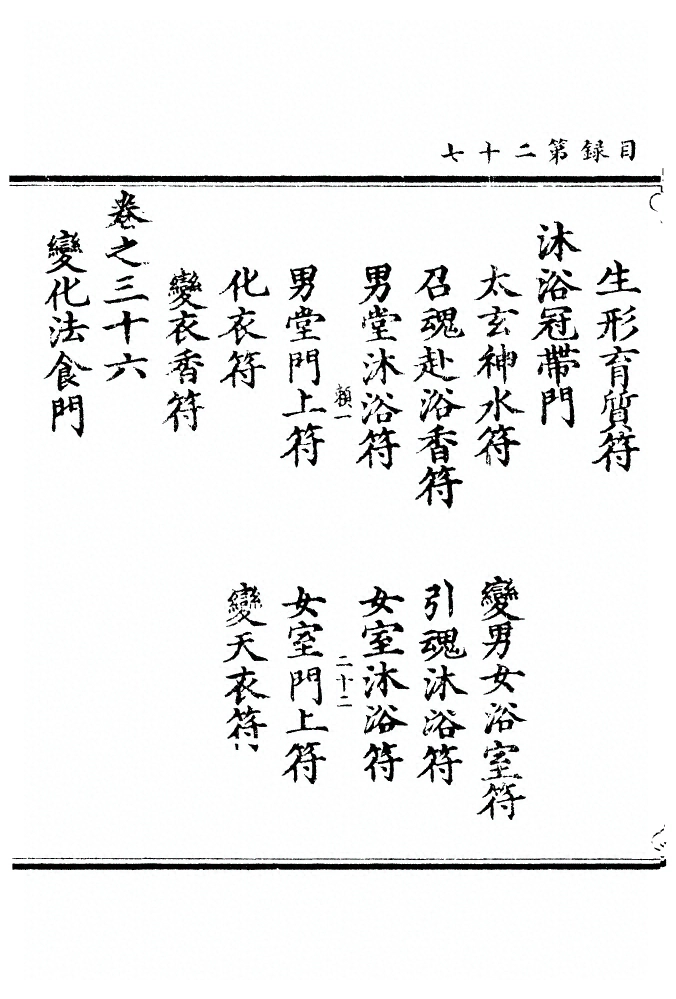 目録第二十七
生形育質符
沐浴冠帶門
太玄神水符　變男女浴室符
召魂赴浴香符　引魂沐浴符
男堂沐浴符　女室沐浴符
賴一　二十二
男堂門上符　女室門上符
化衣符　變天衣符
變衣香符
卷之三十六
變化法食門